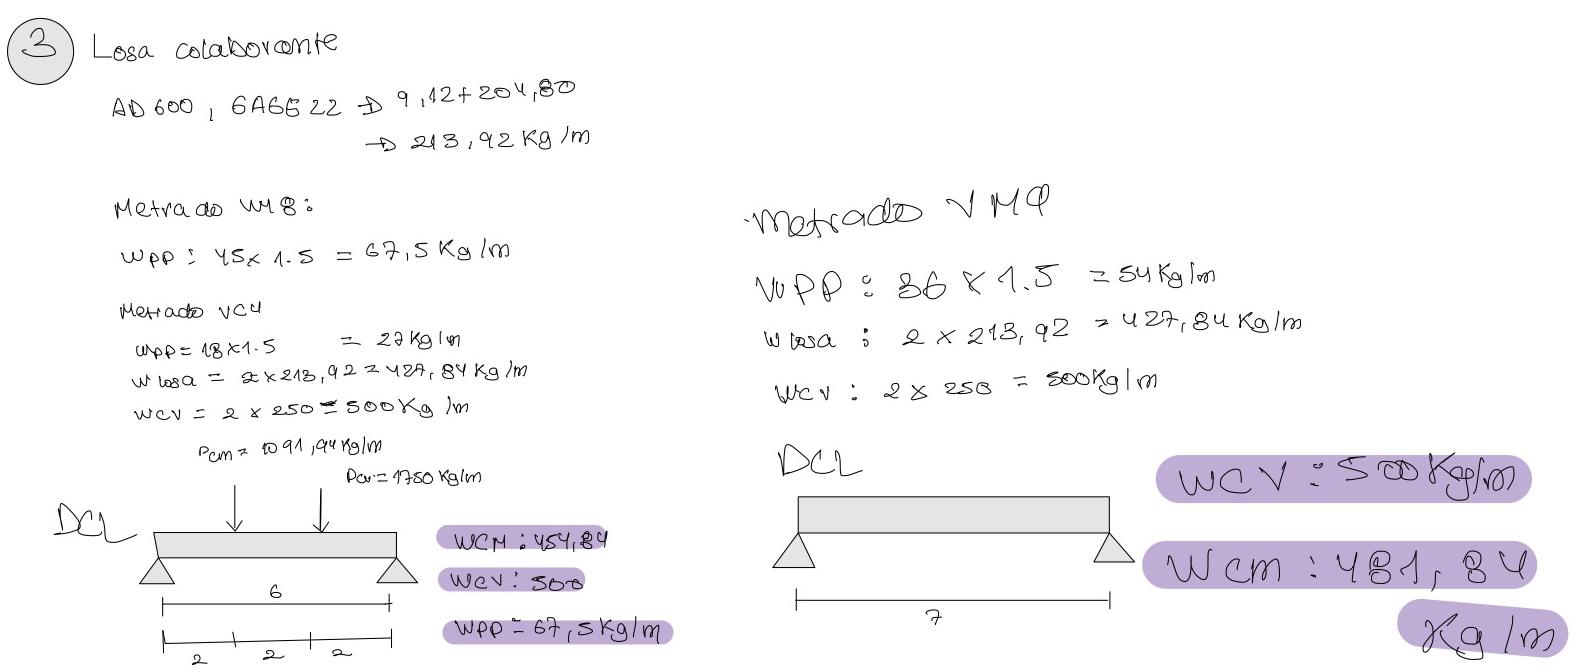 3 Losa colaborante
AD 600, GAGE 22 → 9,12+204,80
→ 213,92 Kg/m
Metrado VM8:
WPP: 45x 1.5 = 67,5 Kg/m
Metrado VC4
WPP = 18x1.5 = 27Kg/m
W losa = 2x213,92 = 427,84 Kg/m
WCV = 2 x 250 = 500Kg/m
Pcm = 1091,94 Kg/m
Pcv = 1750 Kg/m
DCL
WCM: 454,84
WCV: 500
WPP = 67,5Kg/m
6
2 2 2
Metrado VM9
WPP: 36 x 1.5 = 54Kg/m
W losa: 2 x 213,92 = 427,84 Kg/m
WCV: 2 x 250 = 500Kg/m
DCL
7
WCV: 500Kg/m
Wcm: 481,84
Kg/m